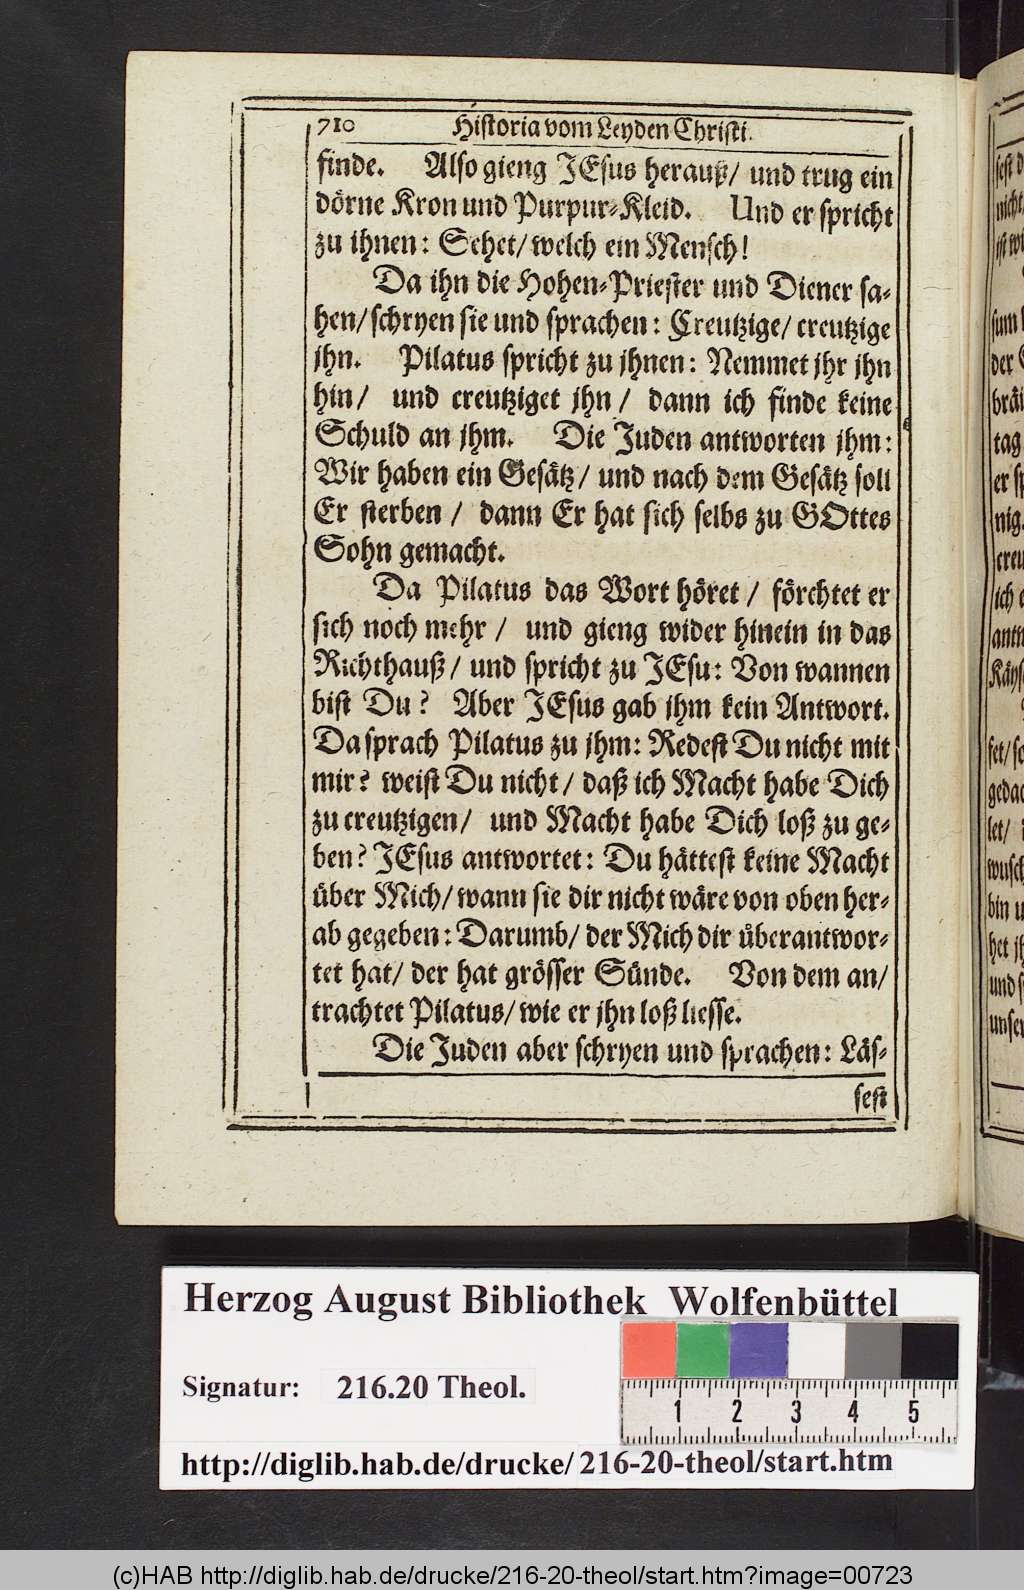 710 Historia vom Leyden Christi.
finde. Also gieng JEsus herauß/ und trug ein
dörne Kron und Purpur-Kleid. Und er spricht
zu ihnen: Sehet/ welch ein Mensch!
Da ihn die Hohen-Priester und Diener sa-
hen/ schryen sie und sprachen: Creutzige/ creutzige
jhn. Pilatus spricht zu jhnen: Nemmet jhr jhn
hin/ und creutziget jhn/ dann ich finde keine
Schuld an jhm. Die Juden antworten jhm:
Wir haben ein Gesätz/ und nach dem Gesätz soll
Er sterben/ dann Er hat sich selbs zu GOttes
Sohn gemacht.
Da Pilatus das Wort höret/ förchtet er
sich noch mehr/ und gieng wider hinein in das
Richthauß/ und spricht zu JEsu: Von wannen
bist Du? Aber JEsus gab jhm kein Antwort.
Da sprach Pilatus zu jhm: Redest Du nicht mit
mir? weist Du nicht/ daß ich Macht habe Dich
zu creutzigen/ und Macht habe Dich loß zu ge-
ben? JEsus antwortet: Du hättest keine Macht
über Mich/ wann sie dir nicht wäre von oben her-
ab gegeben: Darumb/ der Mich dir überantwor-
tet hat/ der hat grösser Sünde. Von dem an/
trachtet Pilatus/ wie er jhn loß liesse.
Die Juden aber schryen und sprachen: Läs-
sest
Herzog August Bibliothek Wolfenbüttel
Signatur: 216.20 Theol.
1 2 3 4 5
http://diglib.hab.de/drucke/216-20-theol/start.htm
(c)HAB http://diglib.hab.de/drucke/216-20-theol/start.htm?image=00723